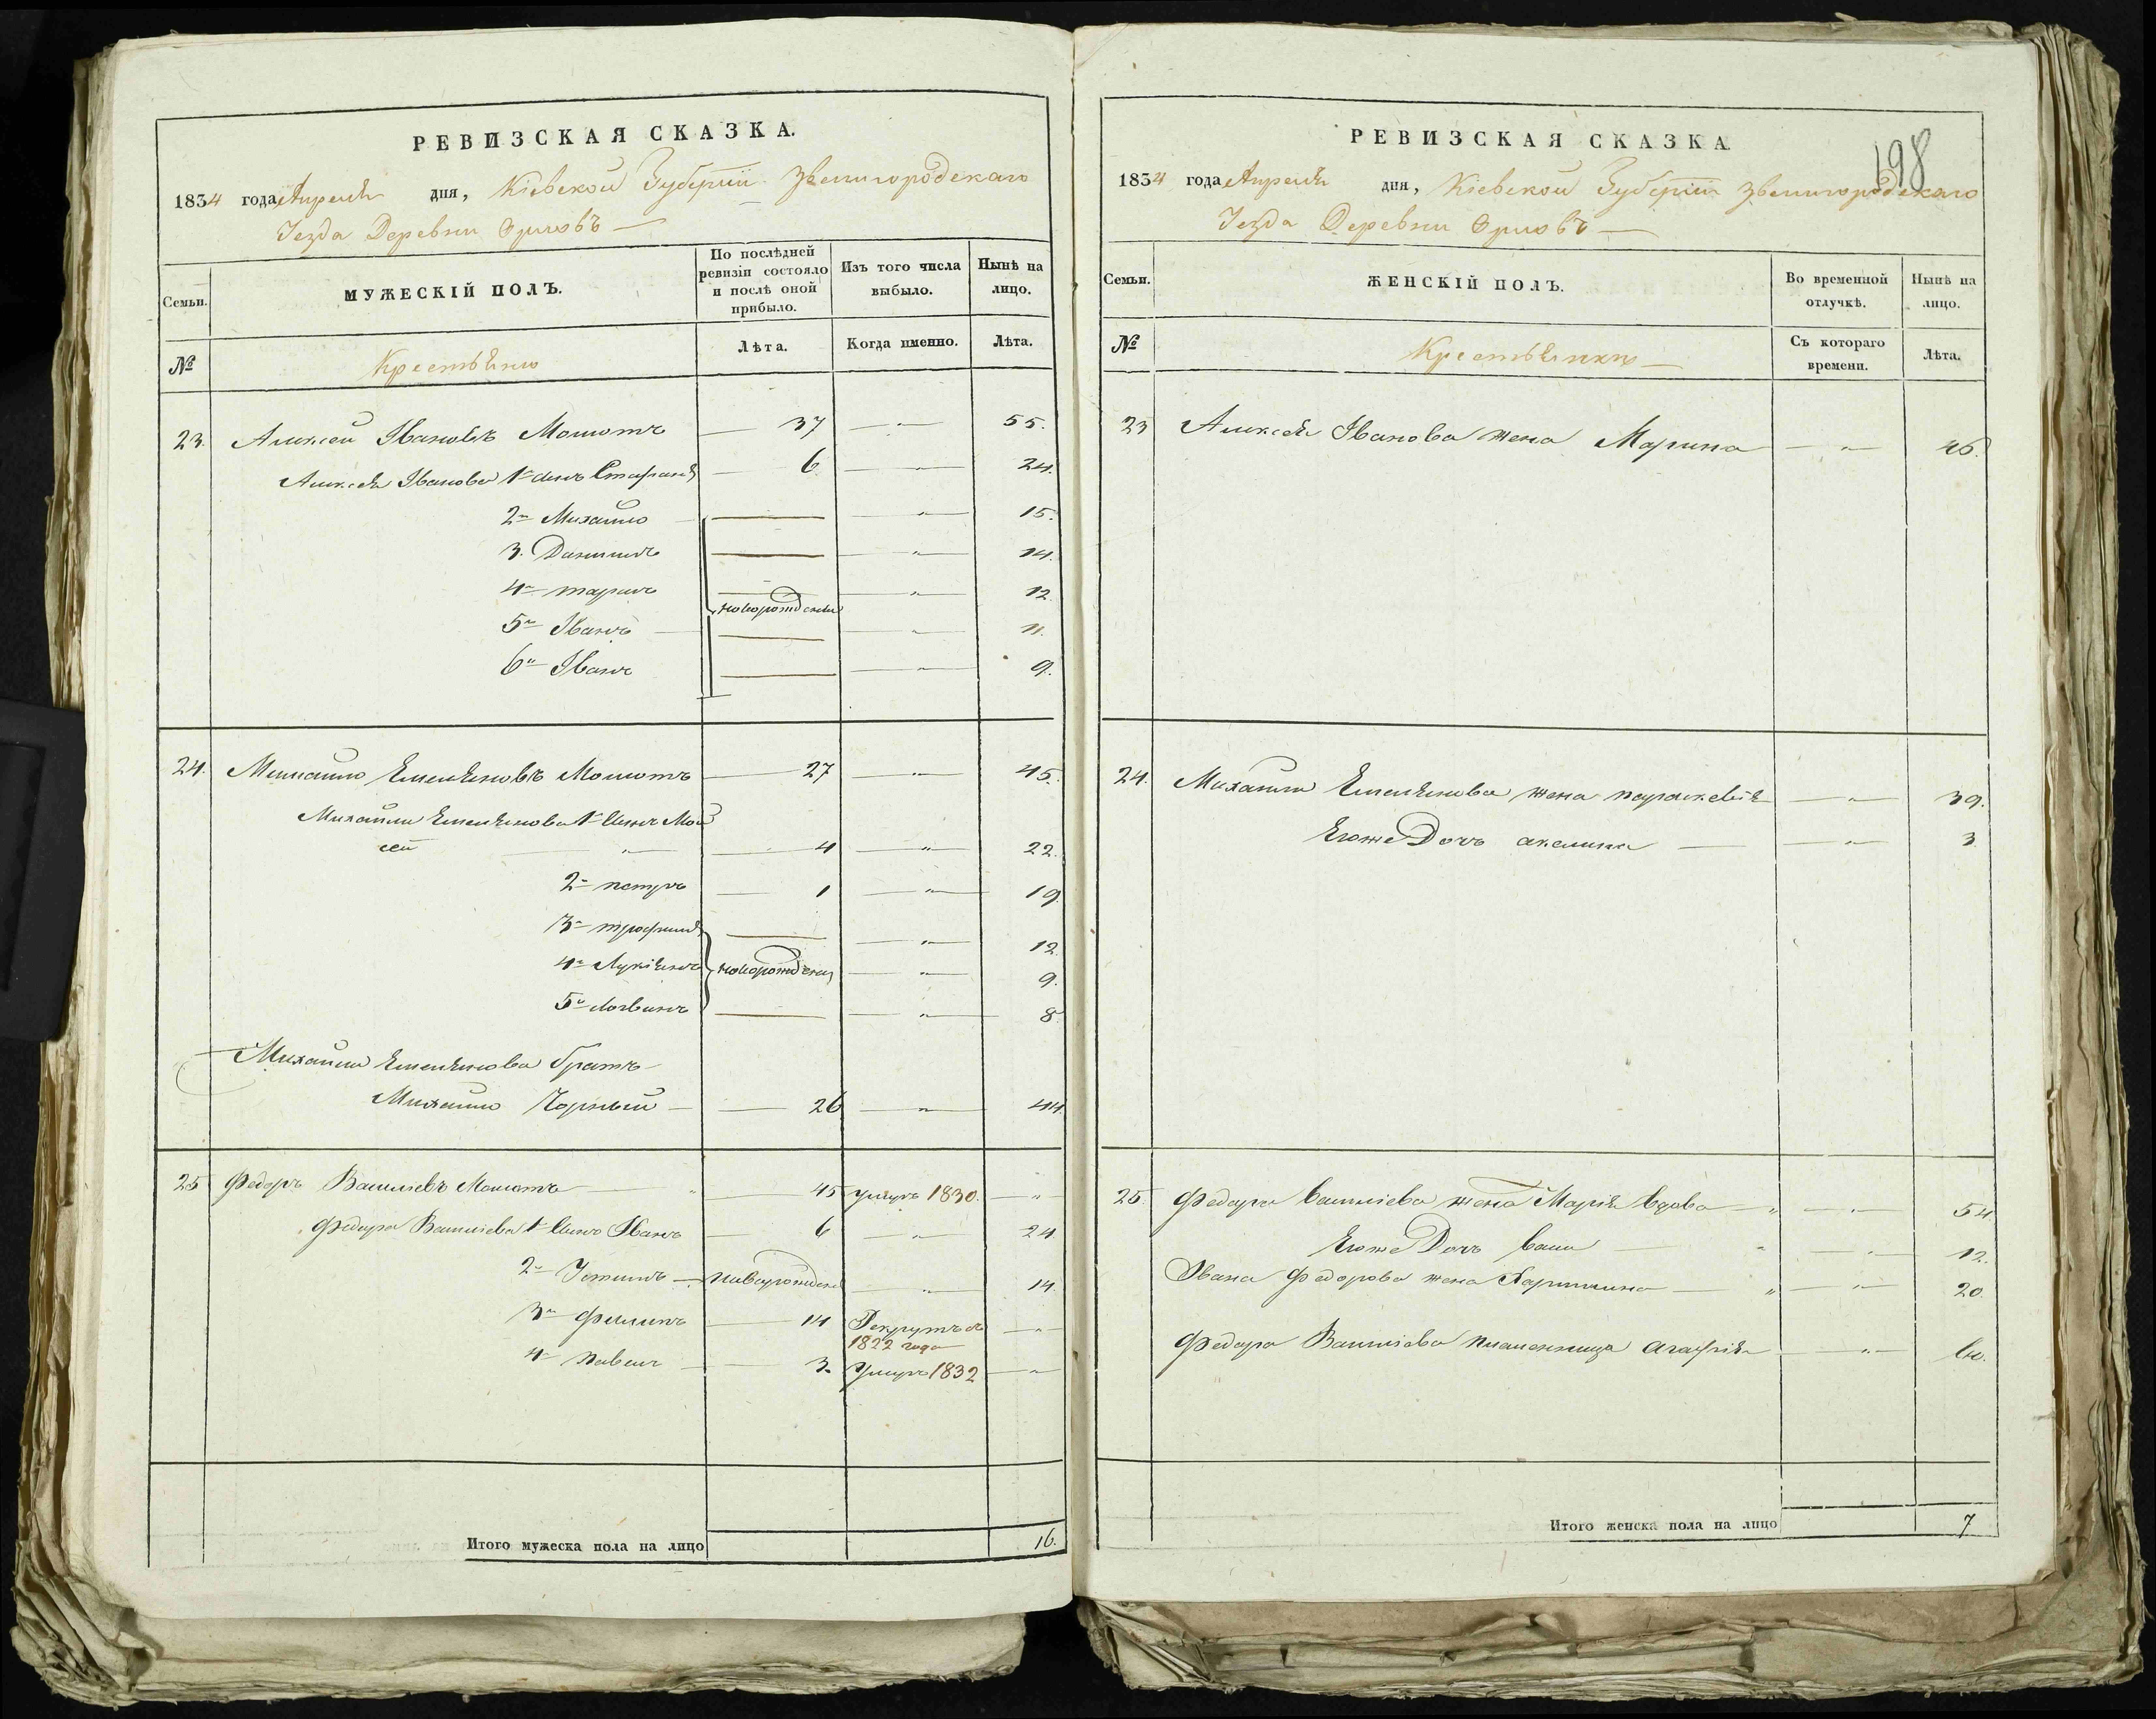 РЕВИЗСКАЯ СКАЗКА.
1834 года Апреля дня, Кіевской Губерніи Звенигородскаго
Уезда Деревни Орловъ
Семьи.
МУЖЕСКІЙ ПОЛЪ.
По послѣдней ревизіи состояло и послѣ оной прибыло.
Изъ того числа выбыло.
Нынѣ на лицо.
№
Крестьяне
Лѣта.
Когда именно.
Лѣта.
23. Алексей Ивановъ Момотъ 37 55.
Алексея Иванова 1й сынъ Стафанъ 6 24.
2й Михайло 15.
3. Данилъ 14.
4й тарасъ 12
новорождены
5й Иванъ 11.
6й Иванъ 9.
24. Михайло Емельяновъ Момотъ 27 45.
Михайлы Емельянова 1й Сынъ Мой
сей 4 22.
2й петръ 1 19.
3й трофимъ 12
4й Лукіянъ новорождены 9.
5й Логвинъ 8
Михайлы Емельянова братъ
Михайло Чорный 26 44.
25 Федоръ Васильевъ Момотъ 45 умеръ 1830.
Федора Васильева 1й Сынъ Иванъ 6 24
2й Устимъ новорожденъ 14
3й Филипъ 14 Рекрутъ съ
1822 года
4й Павелъ 3. Умеръ 1832
Итого мужеска пола на лицо 16.
РЕВИЗСКАЯ СКАЗКА
198
1834 года Апреля дня, Кіевской Губерніи Звенигородскаго
Уезда Деревни Орловъ
Семьи.
ЖЕНСКІЙ ПОЛЪ.
Во временной отлучкѣ.
Нынѣ на лицо.
№
Крестьянки
Съ котораго времени.
Лѣта.
23 Алексея Иванова жена Марина 46.
24. Михайлы Емельянова жена параскевія 39.
Егоже Дочь акелина 3
25. Федора Васильева жена Марія вдова 54
Егоже Дочь 12.
Ивана Федорова жена 20.
Федора Васильева племенница агафія
Итого женска пола на лицо 7